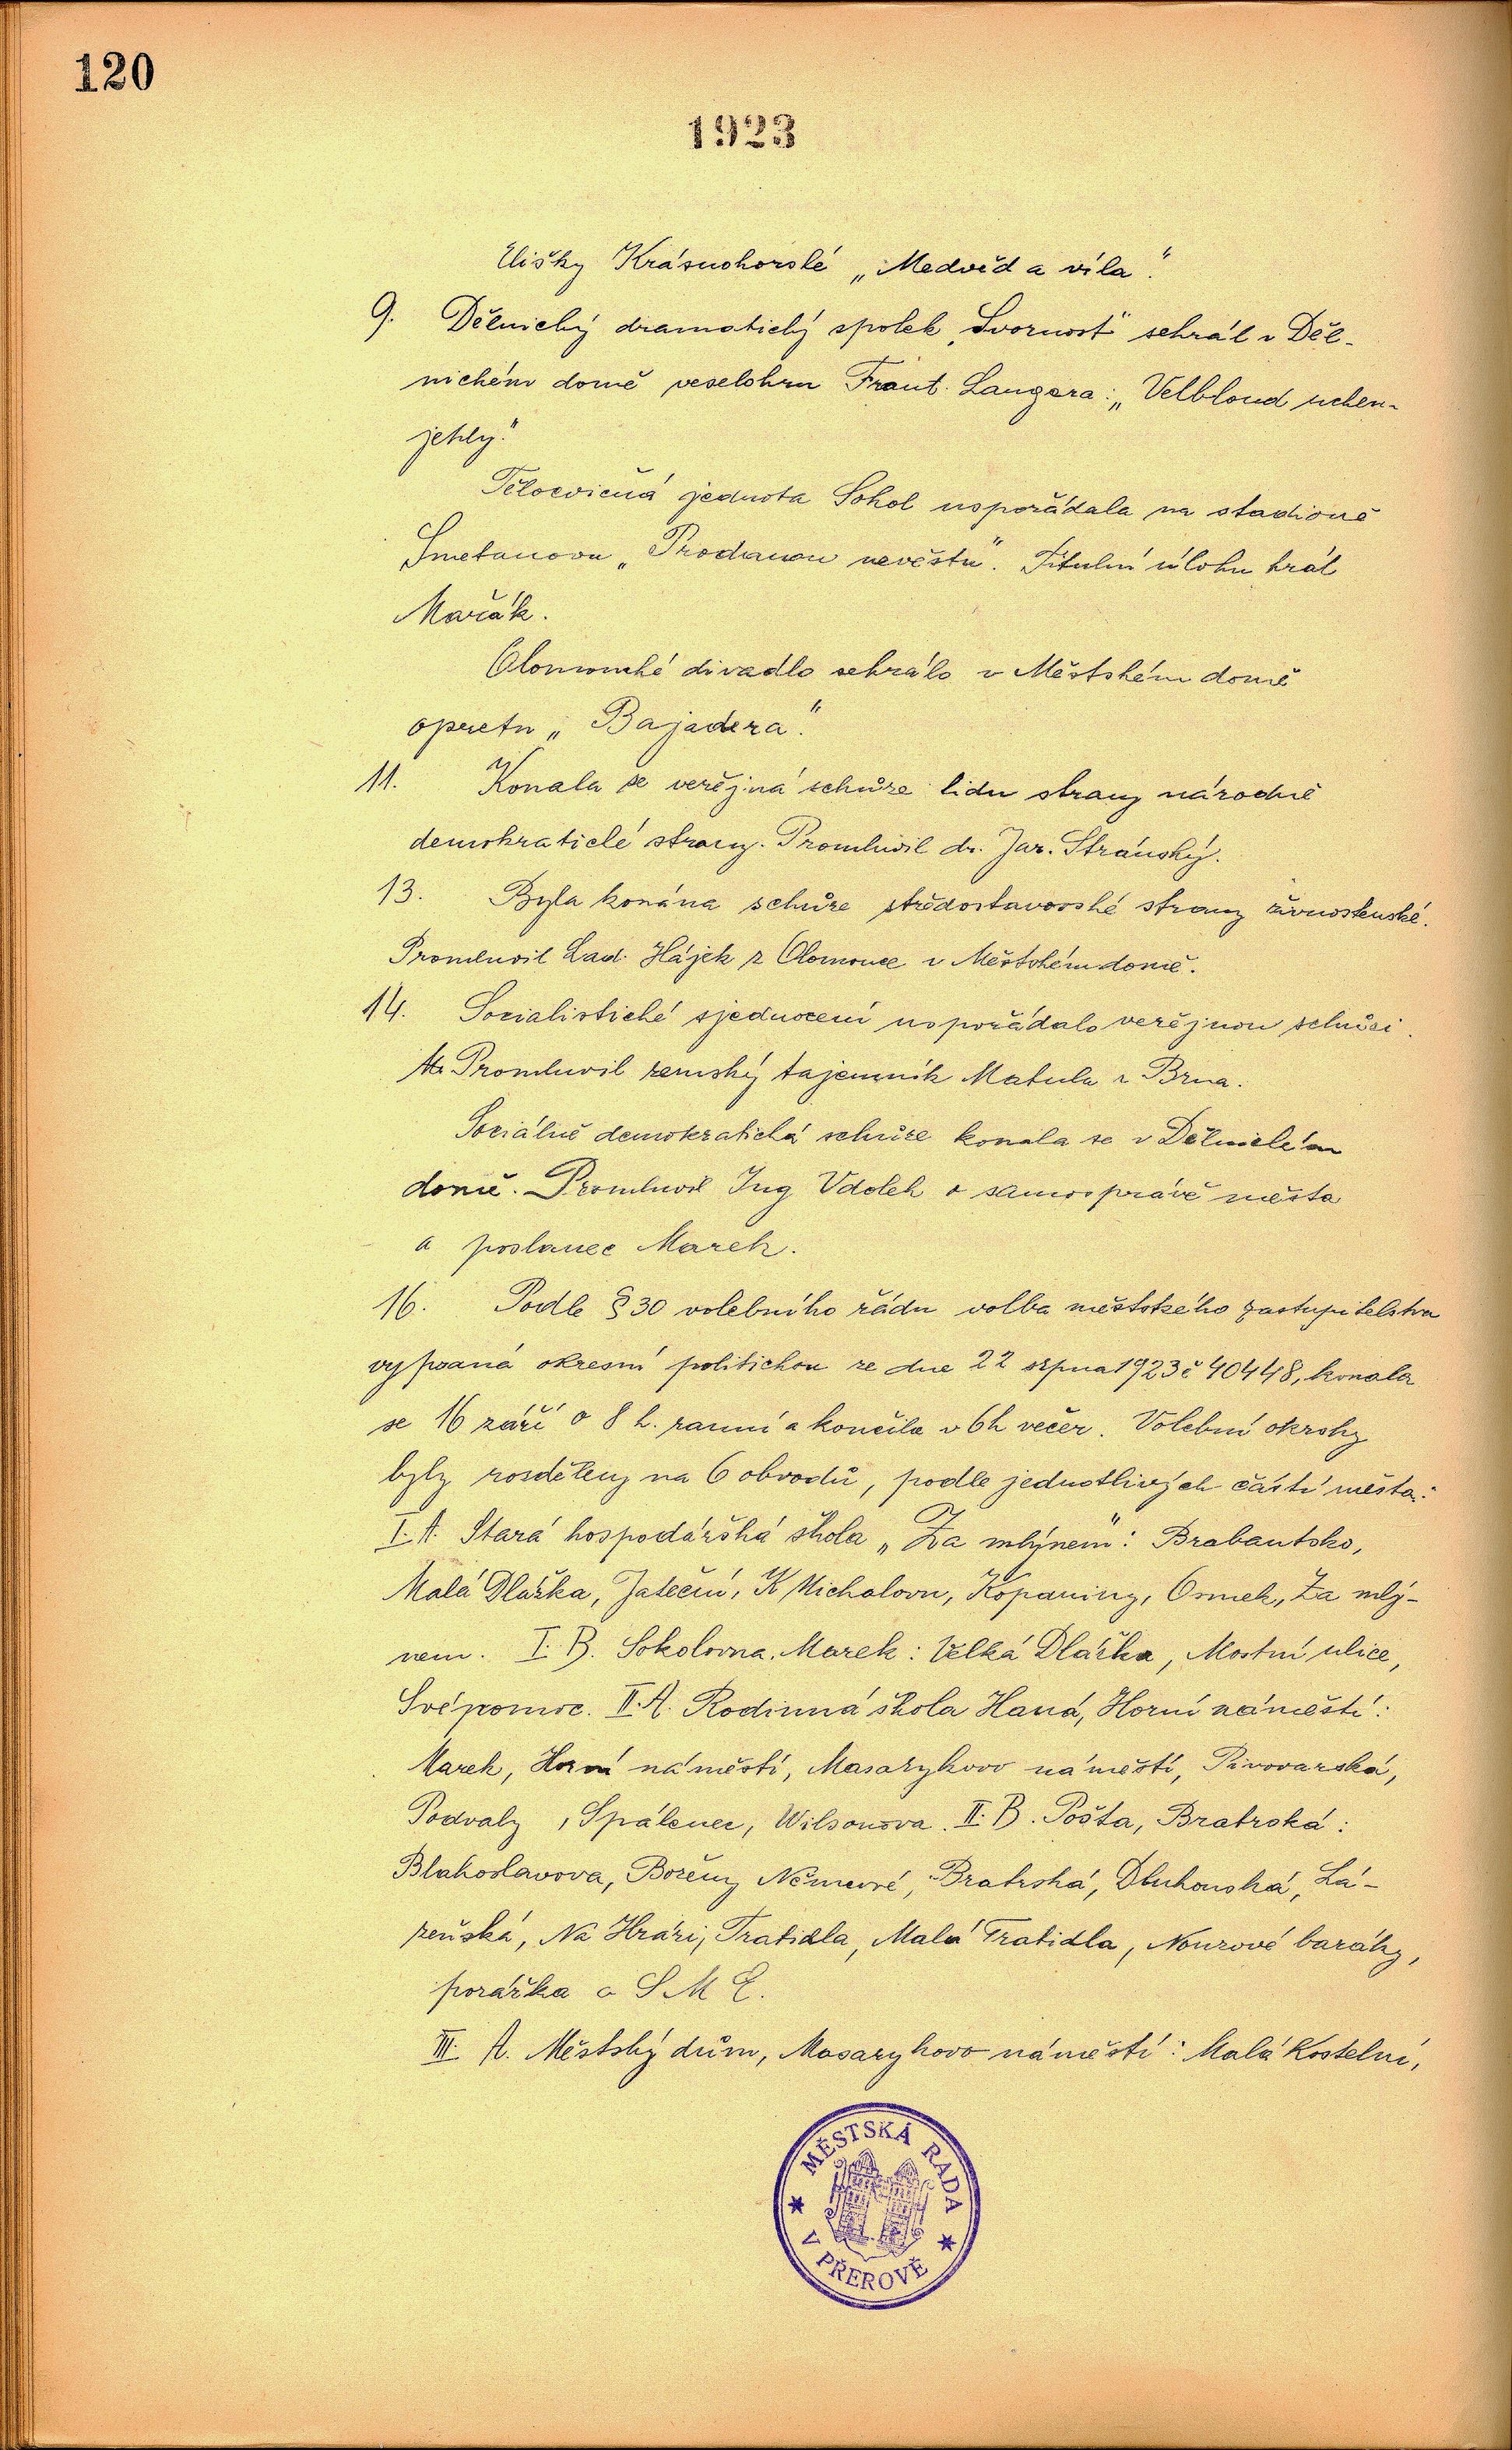 120
1923
Elišky Krásnohorské „Medvěd a víla."
9. Dělnický dramatický spolek „Svornost" sehrál v Děl-
nickém domě veselohru Frant. Langera: „Velbloud uchem
jehly."
Tělocvičná jednota Sokol uspořádala na stadioně
Smetanovu „Prodanou nevěstu". Titulní úlohu hrál
Mařák.
Olomoucké divadlo sehrálo v Městském domě
opretu „Bajadera."
11. Konala se veřějná schůze lidu strany národně
demokratické strany. Promluvil dr. Jar. Stránský.
13. Byla konána schůze středostavovské strany živnostenské.
Promluvil Lad. Hájek z Olomouce v Městském domě.
14. Socialistické sjednocení uspořádalo veřějnou schůzi.
Promluvil zemský tajemník Matula z Brna.
Sociálně demokratická schůze konala se v Dělnickém
domě. Promluvil Ing Vdolek o samosprávě města
a poslanec Marek.
16. Podle § 30 volebního řádu volba městského zastupitelstva
vypsaná okresní politickou ze dne 22 srpna 1923 č 40448, konala
se 16 září o 8 h. ranní a končila v 6h večer. Volební okrsky
byly rozděleny na 6 obvodů, podle jednotlivých částí města:
I. A. Stará hospodářská škola „Za mlýnem": Brabantsko,
Malá Dlážka, Jateční, K Michalovu, Kopaniny, Osmek, Za mlý-
nem. I. B. Sokolovna. Marek: Velká Dlážka, Mostní ulice,
Svépomoc. II. A. Rodinná škola Haná, Horní náměstí:
Marek, Horní náměstí, Masarykovo náměstí, Pivovarská,
Podvaly, Spálenec, Wilsonova. II. B. Pošta, Bratrská:
Blahoslavova, Boženy Němcové, Bratrská, Dluhonská, Lá-
zeňská, Na Hrázi, Tratidla, Malá Tratidla, Nouzové baráky,
porážka a S M E.
III. A. Městský dům, Masarykovo náměstí: Malá Kostelní,
MĚSTSKÁ RADA
V PŘEROVĚ